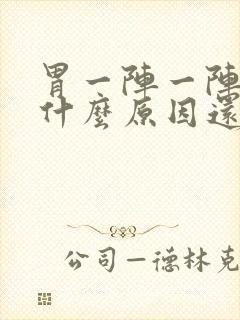 胃一陣一陣
什麼原因還
公司—德林克